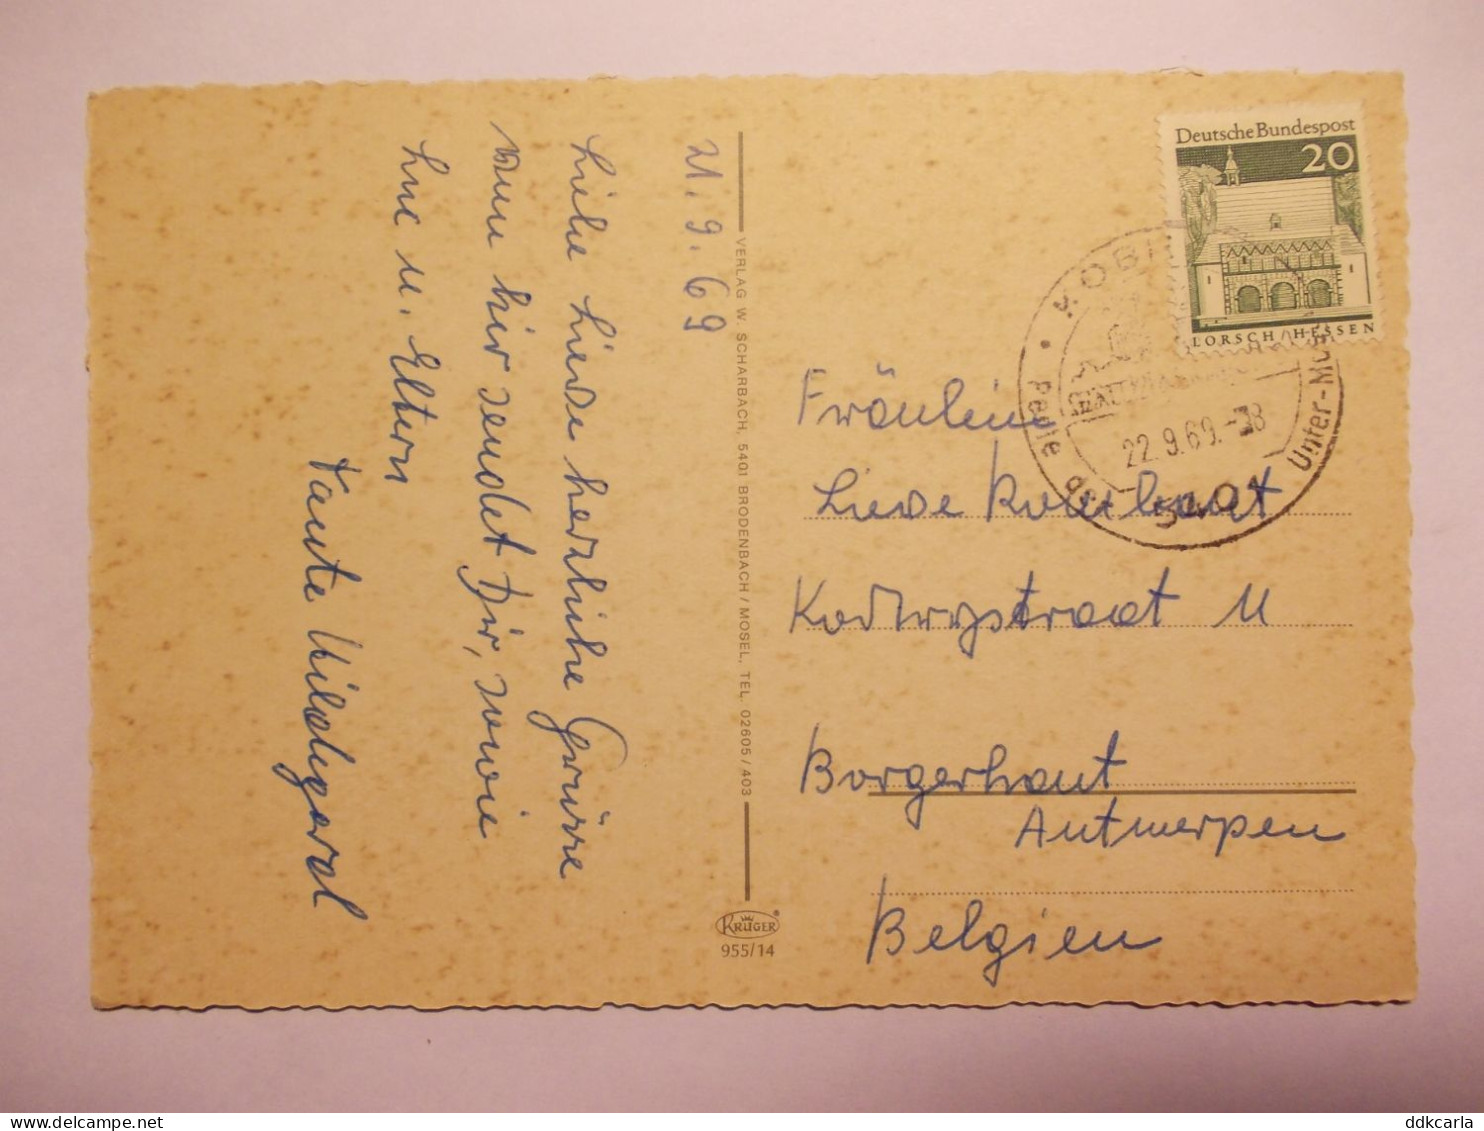 21. 9. 69
Liebe Lieve herzliche Grüsse
von hir sendet Dir, sowie
u. Eltern
Tante Hildegard
VERLAG W. SCHARBACH, 5401 BRODENBACH / MOSEL, TEL. 02605 / 403
KRÜGER
955/14
Deutsche Bundespost
20
LORSCH / HESSEN
KOBE
Perle der Unter-Mosel
22.9.69.-18
5401
Fräulein
Lieve
11
Borgerhout
Antwerpen
Belgien
ddkcarla